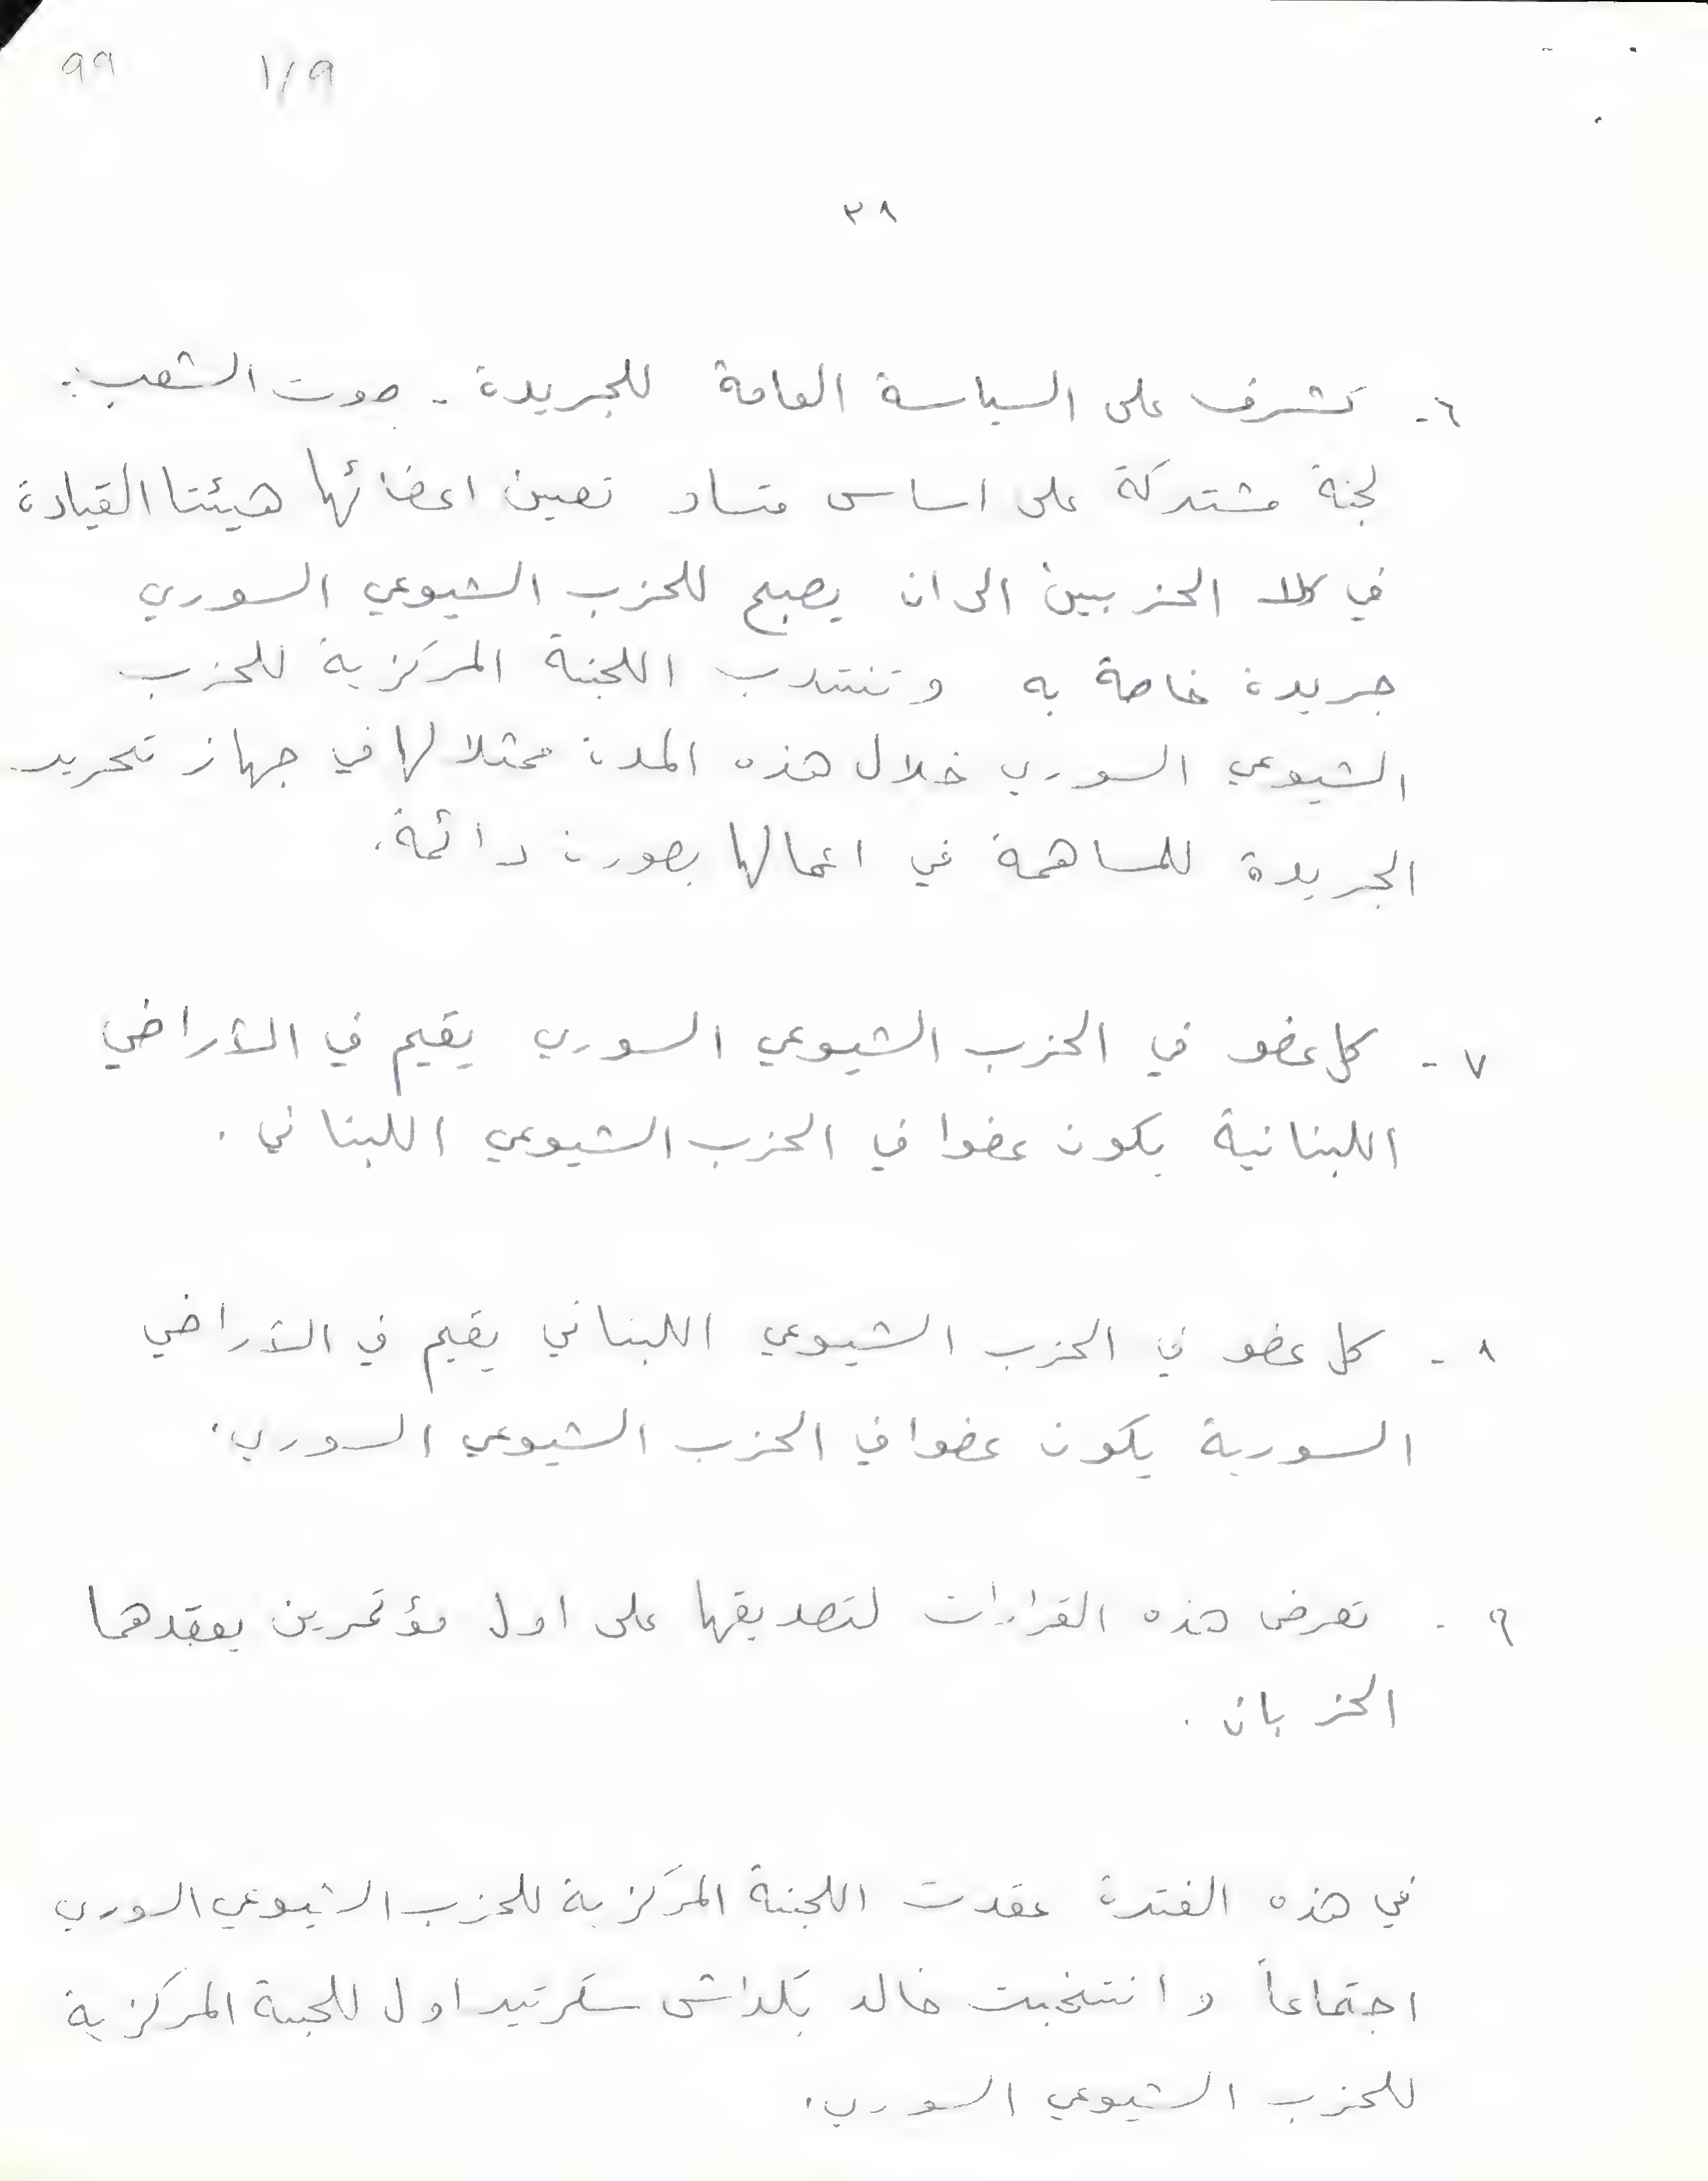 99 1/9
٣٨
٦- تشرف على السياسة العامة للجريدة - صوت الشعب:
لجنة مشتركة على اساس متساو تعين اعضائها هيئتا القيادة
في كلا الحزبين الى ان يصبح للحزب الشيوعي السوري
جريدة خاصة به وتنتدب اللجنة المركزية للحزب
الشيوعي السوري خلال هذه المدة ممثلا لها في جهاز تحرير
الجريدة للمساهمة في اعمالها بصورة دائمة.
٧- كل عضو في الحزب الشيوعي السوري يقيم في الأراضي
اللبنانية يكون عضوا في الحزب الشيوعي اللبناني.
٨- كل عضو في الحزب الشيوعي اللبناني يقيم في الأراضي
السورية يكون عضوا في الحزب الشيوعي السوري.
٩- تعرض هذه القرارات لتصديقها على اول مؤتمرين يعقدهما
الحزبان.
في هذه الفترة عقدت اللجنة المركزية للحزب الشيوعي السوري
اجتماعاً وانتخبت خالد بكداش سكرتير اول للجنة المركزية
للحزب الشيوعي السوري.